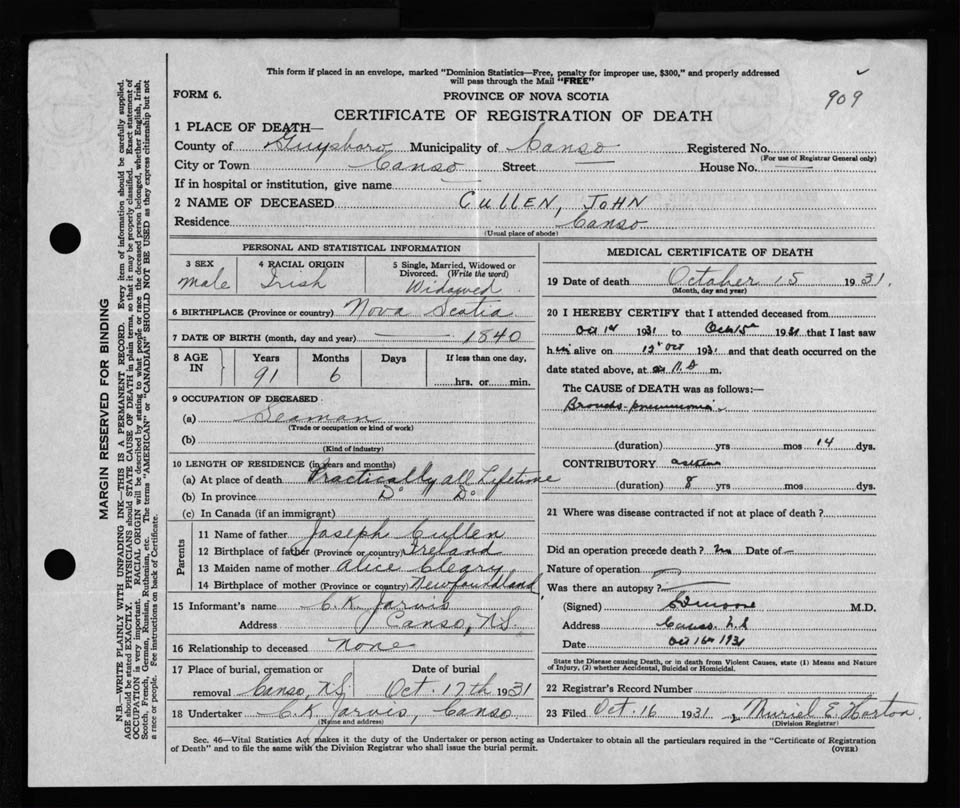 This form if placed in an envelope, marked "Dominion Statistics—Free, penalty for improper use, $300," and properly addressed
will pass through the Mail "FREE"
909
FORM 6.
PROVINCE OF NOVA SCOTIA
CERTIFICATE OF REGISTRATION OF DEATH
1 PLACE OF DEATH—
County of Guysboro Municipality of Canso Registered No.
(For use of Registrar General only)
City or Town Canso Street — House No. —
If in hospital or institution, give name —
2 NAME OF DECEASED CULLEN, JOHN
Residence Canso
(Usual place of abode)
PERSONAL AND STATISTICAL INFORMATION
3 SEX 4 RACIAL ORIGIN 5 Single, Married, Widowed or
Divorced. (Write the word)
Male Irish Widowed
6 BIRTHPLACE (Province or country) Nova Scotia
7 DATE OF BIRTH (month, day and year) — 1840
8 AGE IN Years Months Days If less than one day,
91 6 hrs. or min.
9 OCCUPATION OF DECEASED
(a) Seaman
(Trade or occupation or kind of work)
(b)
(Kind of industry)
10 LENGTH OF RESIDENCE (in years and months)
(a) At place of death Practically all Lifetime
(b) In province Do Do
(c) In Canada (if an immigrant)
Parents
11 Name of father Joseph Cullen
12 Birthplace of father (Province or country) Ireland
13 Maiden name of mother Alice Cleary
14 Birthplace of mother (Province or country) Newfoundland
15 Informant's name C. K. Jarvis
Address Canso, N.S.
16 Relationship to deceased None
17 Place of burial, cremation or Date of burial
removal Canso, N.S. Oct. 17th 1931
18 Undertaker C. K. Jarvis, Canso
(Name and address)
MEDICAL CERTIFICATE OF DEATH
19 Date of death October 15 1931.
(Month, day and year)
20 I HEREBY CERTIFY that I attended deceased from
Oct 1st 1931 to Oct 15th 1931 that I last saw
him alive on 1931 and that death occurred on the
date stated above, at m.
The CAUSE of DEATH was as follows:—
Broncho-pneumonia
(duration) yrs mos 14 dys.
CONTRIBUTORY
(duration) 8 yrs mos dys.
21 Where was disease contracted if not at place of death?
Did an operation precede death? no Date of —
Nature of operation
Was there an autopsy?
(Signed) M.D.
Address Canso N.S
Date Oct 16th 1931
State the Disease causing Death, or in death from Violent Causes, state (1) Means and Nature
of Injury, (2) whether Accidental, Suicidal or Homicidal.
22 Registrar's Record Number
23 Filed Oct. 16 1931 Muriel E. Horton
(Division Registrar)
Sec. 46—Vital Statistics Act makes it the duty of the Undertaker or person acting as Undertaker to obtain all the particulars required in the "Certificate of Registration
of Death" and to file the same with the Division Registrar who shall issue the burial permit.
(OVER)
MARGIN RESERVED FOR BINDING
N.B.—WRITE PLAINLY WITH UNFADING INK—THIS IS A PERMANENT RECORD. Every item of information should be carefully supplied.
AGE should be stated EXACTLY. PHYSICIANS should STATE CAUSE OF DEATH in plain terms, so that it may be properly classified. Exact statement of
OCCUPATION is very important. RACIAL ORIGIN will be described by stating to what people or race the deceased person belonged, whether English, Irish,
Scotch, French, German, Russian, Ruthenian, etc. The terms "AMERICAN" or "CANADIAN" SHOULD NOT BE USED as they express citizenship but not
a race or people. See instructions on back of Certificate.